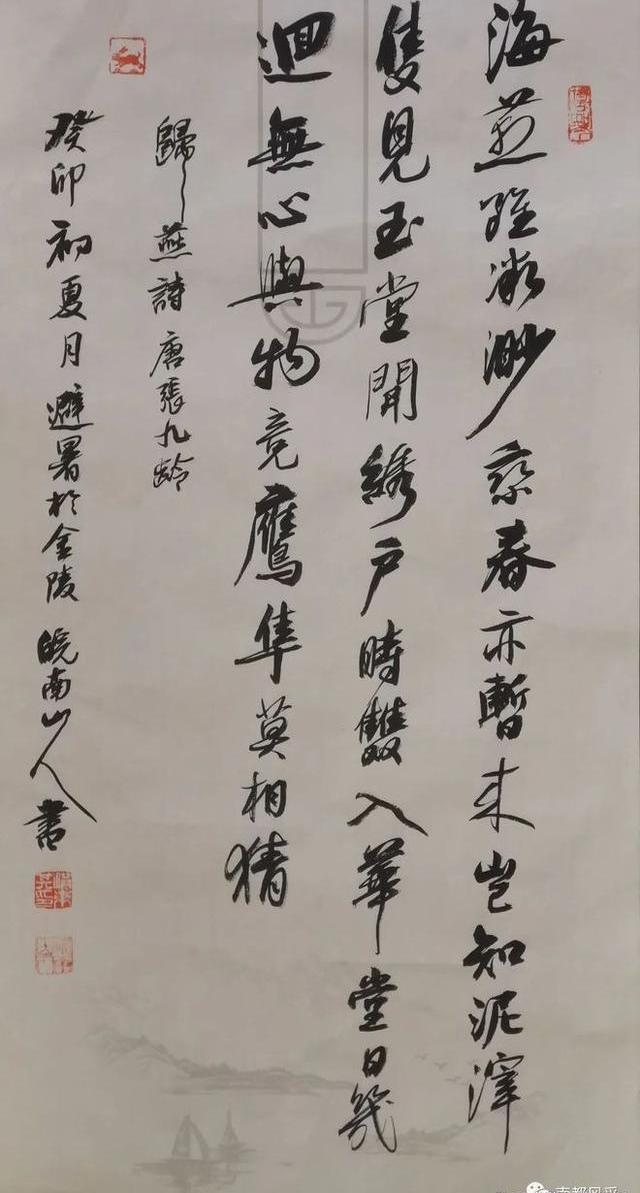 海燕雖微渺乘春亦暫来豈知泥滓
隻見玉堂開繡户時雙入華堂日幾
迴無心與物竞鷹隼莫相猜
歸燕詩 唐張九龄
癸卯初夏月避暑於金陵 皖南山人書